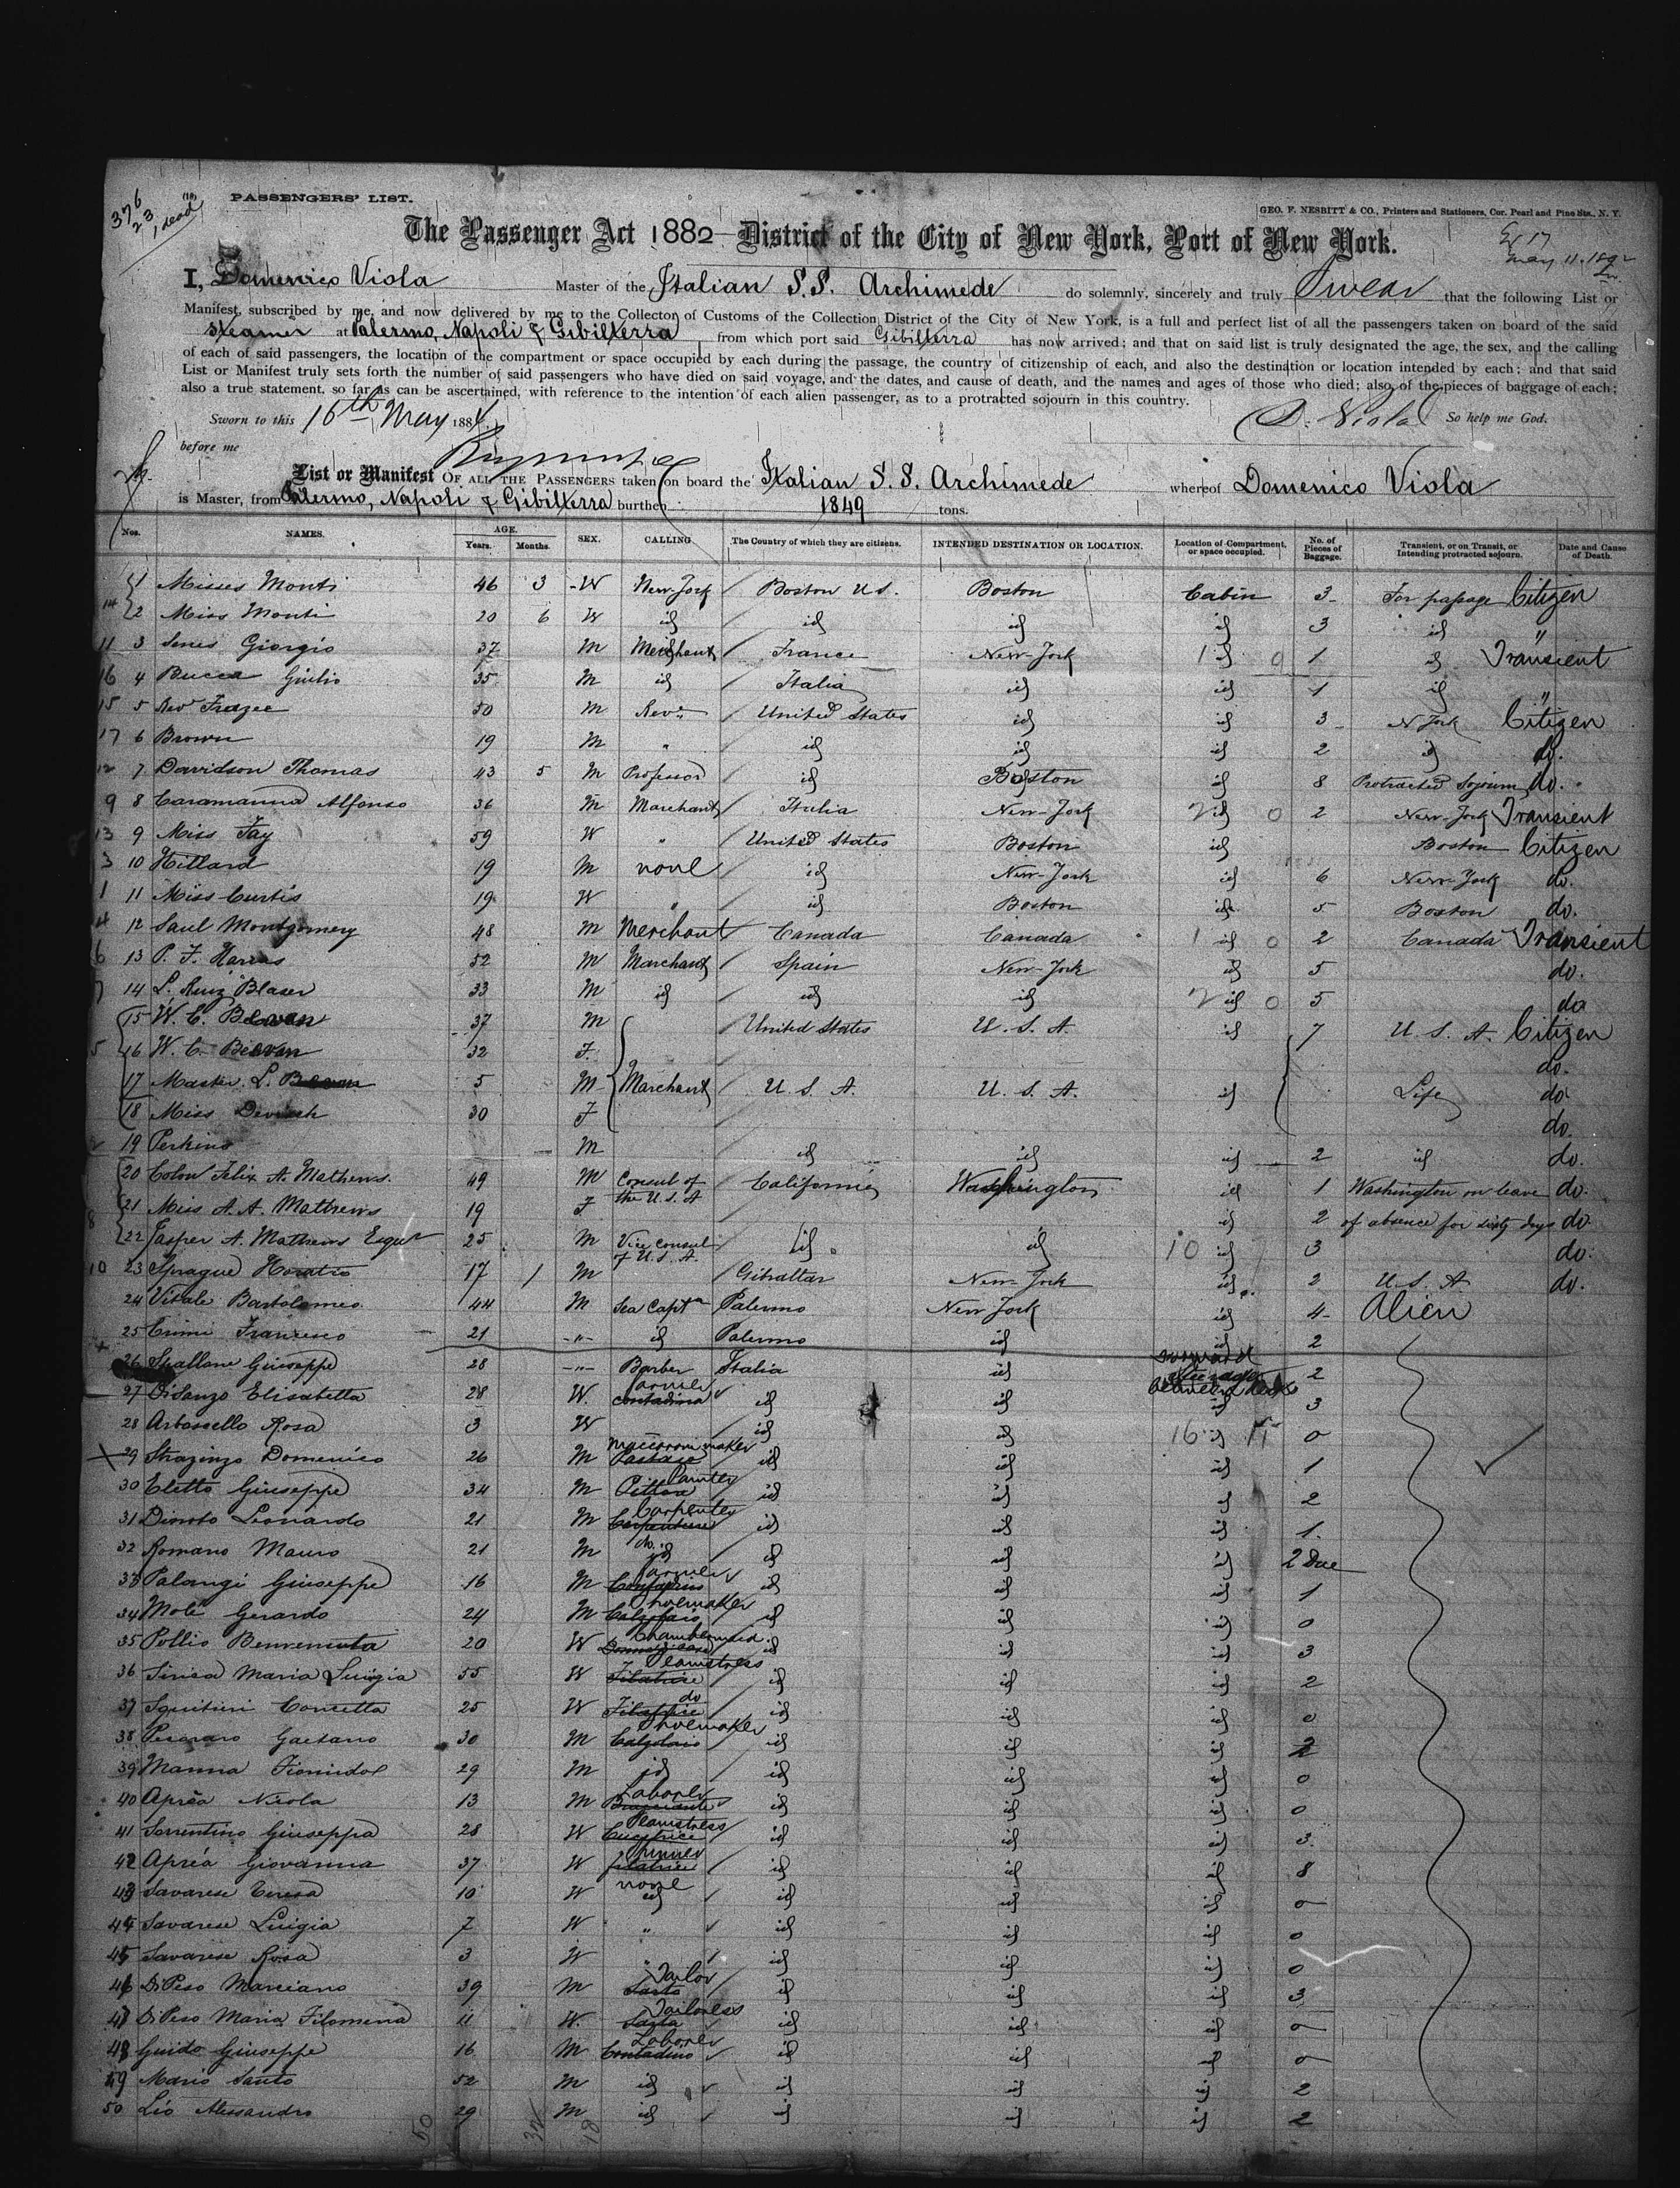 376
23
1 dead
(10)
PASSENGERS' LIST.
GEO. F. NESBITT & CO., Printers and Stationers, Cor. Pearl and Pine Sts., N. Y.
The Passenger Act 1882 District of the City of New York, Port of New York.
May 11. 1892
I, Domenico Viola Master of the Italian S.S. Archimede do solemnly, sincerely and truly Swear that the following List or
Manifest, subscribed by me, and now delivered by me to the Collector of Customs of the Collection District of the City of New York, is a full and perfect list of all the passengers taken on board of the said
steamer at Palermo, Napoli & Gibilterra from which port said Gibilterra has now arrived; and that on said list is truly designated the age, the sex, and the calling
of each of said passengers, the location of the compartment or space occupied by each during the passage, the country of citizenship of each, and also the destination or location intended by each; and that said
List or Manifest truly sets forth the number of said passengers who have died on said voyage, and the dates, and cause of death, and the names and ages of those who died; also, of the pieces of baggage of each;
also a true statement, so far as can be ascertained, with reference to the intention of each alien passenger, as to a protracted sojourn in this country.
Sworn to this 16th May 188 D. Viola So help me God.
before me
List or Manifest OF ALL THE PASSENGERS taken on board the Italian S. S. Archimede whereof Domenico Viola
is Master, from Palermo, Napoli & Gibilterra burthen 1849 tons.
Nos. NAMES. AGE. Years. Months. SEX. CALLING The Country of which they are citizens. INTENDED DESTINATION OR LOCATION. Location of Compartment, or space occupied. No. of Pieces of Baggage. Transient, or on Transit, or Intending protracted sojourn. Date and Cause of Death.
1 Misses Monti 46 3 W New-York Boston U S. Boston Cabin 3 For passage Citizen
14 2 Miss Monti 20 6 W id id id id 3 id "
11 3 Senes Giorgio 37 M Merchant France New-York 1 id 0 1 id Transient
16 4 Bucca Giulio 35 M id Italia id id 1 id "
15 5 Rev Frazee 50 M Rev. United States id id 3 N York Citizen
17 6 Brown 19 M " id id id 2 id do.
12 7 Davidson Thomas 43 5 M Professor id Boston id 8 Protracted Sojourn do.
9 8 Caramanna Alfonso 36 M Marchant Italia New-York 2 id 0 2 New-York Transient
13 9 Miss Fay 59 W " United States Boston id Boston Citizen
3 10 Hillard 19 M none id New-York id 6 New-York do.
1 11 Miss Curtis 19 W " id Boston id 5 Boston do.
4 12 Saul Montgomery 48 M Merchant Canada Canada 1 id 0 2 Canada Transient
6 13 P. F. Harras 52 M Marchant Spain New-York id 5 do.
7 14 L. Ruiz Blaser 33 M id id id 2 id 0 5 do
15 W. C. Bevan 37 M United States U. S. A. id 7 U S. A. Citizen
5 16 W. C. Bevan 32 F. do.
17 Master. L. 5 M Marchant U. S. A. U. S. A. id Life do
18 Miss 30 F do.
19 Perkins M id id id 2 id do.
20 Colon Felix A. Mathews. 49 M Consul of the U. S. A California Washington id 1 Washington on leave do.
21 Miss A. A. Mathews 19 F id 2 of absence for sixty days do.
8 22 Jasper A. Mathews Esqur 25 M Vice Consul of U. S. A. id. id 10 id 3 do.
10 23 Sprague Horatio 17 1 M Gibraltar New-York id 2 U. S. A. do.
24 Vitale Bartolomeo 44 M Sea Capt Palermo New York id 4 Alien
25 Crimi Francesco 21 " id Palermo id id 2
26 Spallone Giuseppe 28 " Barber Italia id forward steerage between decks 2
27 DiSanzo Elisabetta 28 W. Contadina id id id 3
28 Arboscello Rosa 3 W id id 16 id 0
29 Strazinzo Domenico 26 M macaroni maker id id id 1
30 Eletto Giuseppe 34 M Pittore Painter id id id 2
31 Dinoto Leonardo 21 M Carpenter id id id 1.
32 Romano Mauro 21 M do. id id id id 2 Due
33 Palangi Giuseppe 16 M Contadino id id id 1
34 Mole Gerardo 24 M Calzolaio Shoemaker id id id 0
35 Pollio Benvenuta 20 W Chambermaid id id id 3
36 Sirica Maria Luigia 55 W Filatrice Seamstress id id id 2
37 Squitieri Concetta 25 W Filatrice do id id id 0
38 Pecoraro Gaetano 30 M Calzolaio Shoemaker id id id 2
39 Manna 29 M id id id id 0
40 Aprea Nicola 13 M Bracciante Laborer id id id 0
41 Sorrentino Giuseppa 28 W Cucitrice Seamstress id id id 3
42 Aprea Giovanna 37 W filatrice id id id 8
43 Savarese Teresa 10 W none id id id id 0
44 Savarese Luigia 7 W " id id id 0
45 Savarese Rosa 3 W " id id id 0
46 DiPeso Marciano 39 M Sarto Tailor id id id 3
47 DiPeso Maria Filomena 11 W. Sarta Tailoress id id id 0
48 Guido Giuseppe 16 M Contadino Laborer id id id 0
49 Mario Santo 52 M id id id id 2
50 Lio Alessandro 29 M id id id id 2
50 32 18